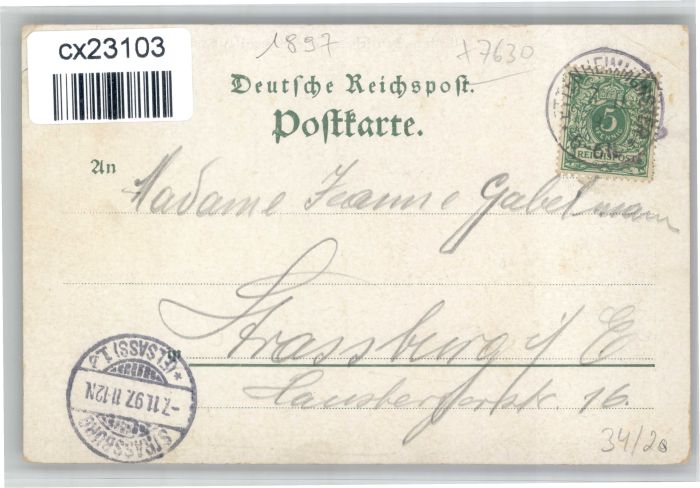 cx23103
1897
+7630
Deutsche Reichspost.
Postkarte.
5
PFENNIG
REICHSPOST
An
Madame Jeanne Gabelmann
Strassburg i/E
16.
STRASSBURG
-7.11.97. 11-12N.
*(ELSASS) 1.
34/20